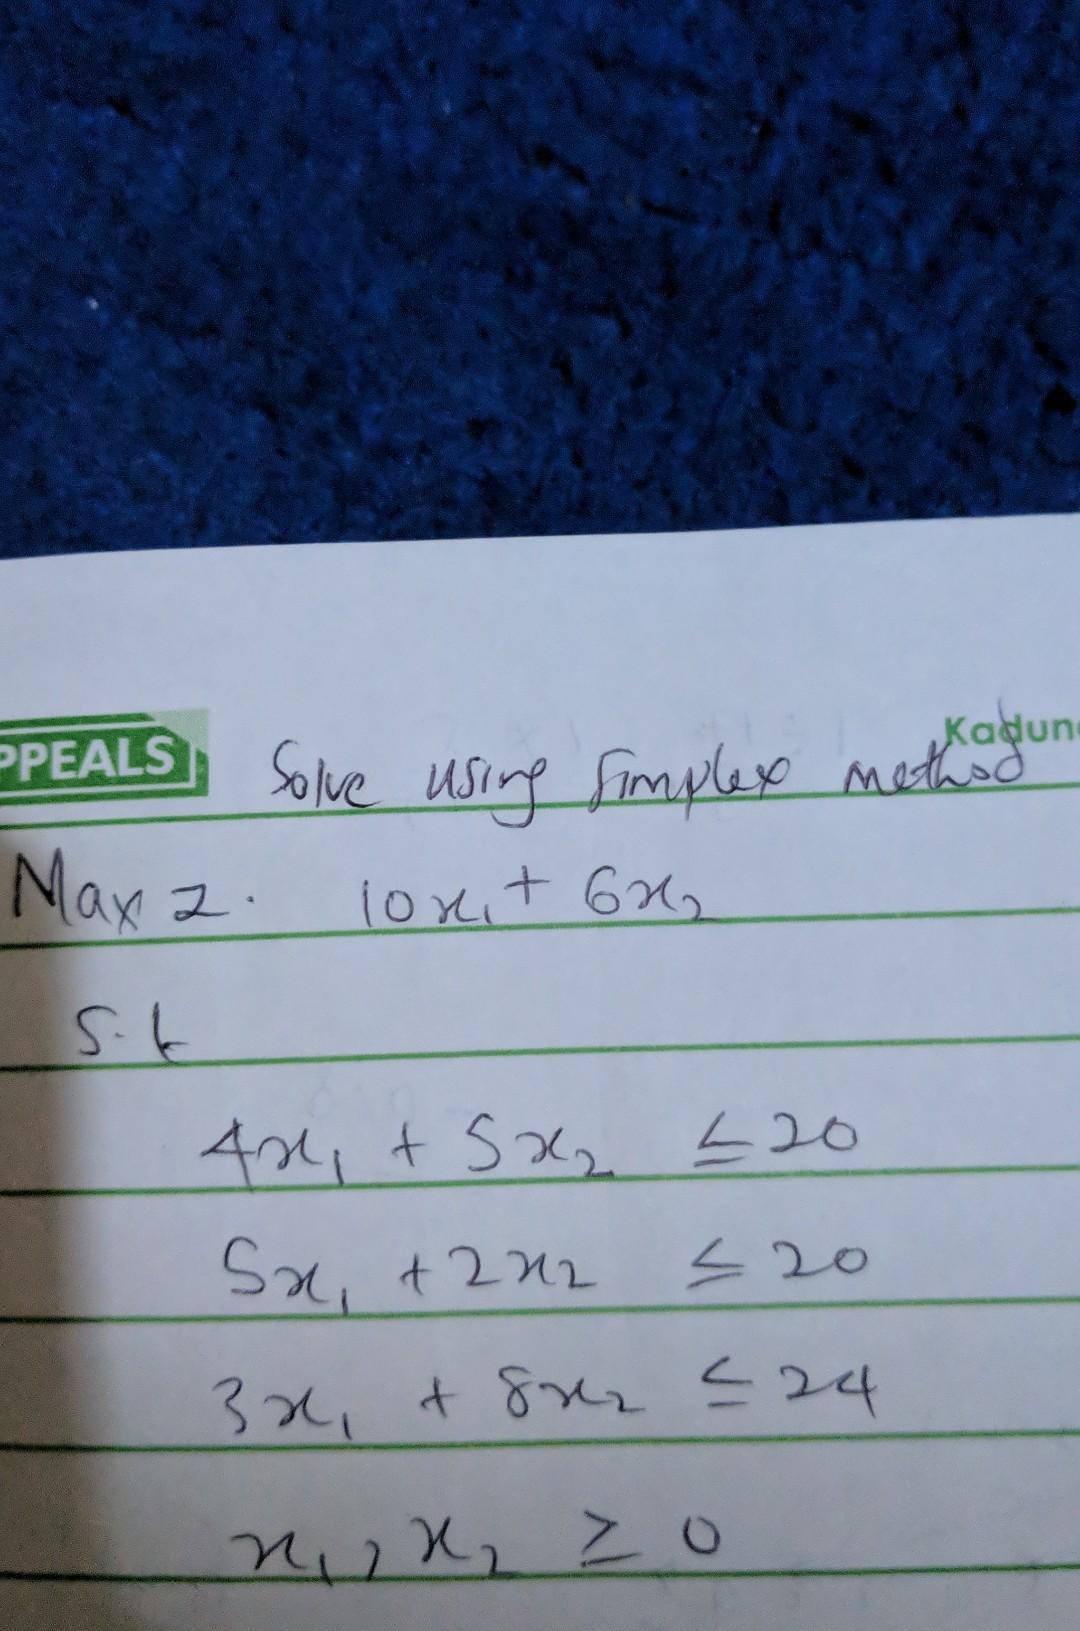 PPEALS
Kadun
Solve using Simplex method
Max Z. 10x₁ + 6x₂
S.t
4x₁ + 5x₂ ≤ 20
5x₁ + 2x₂ ≤ 20
3x₁ + 8x₂ ≤ 24
x₁, x₂ ≥ 0